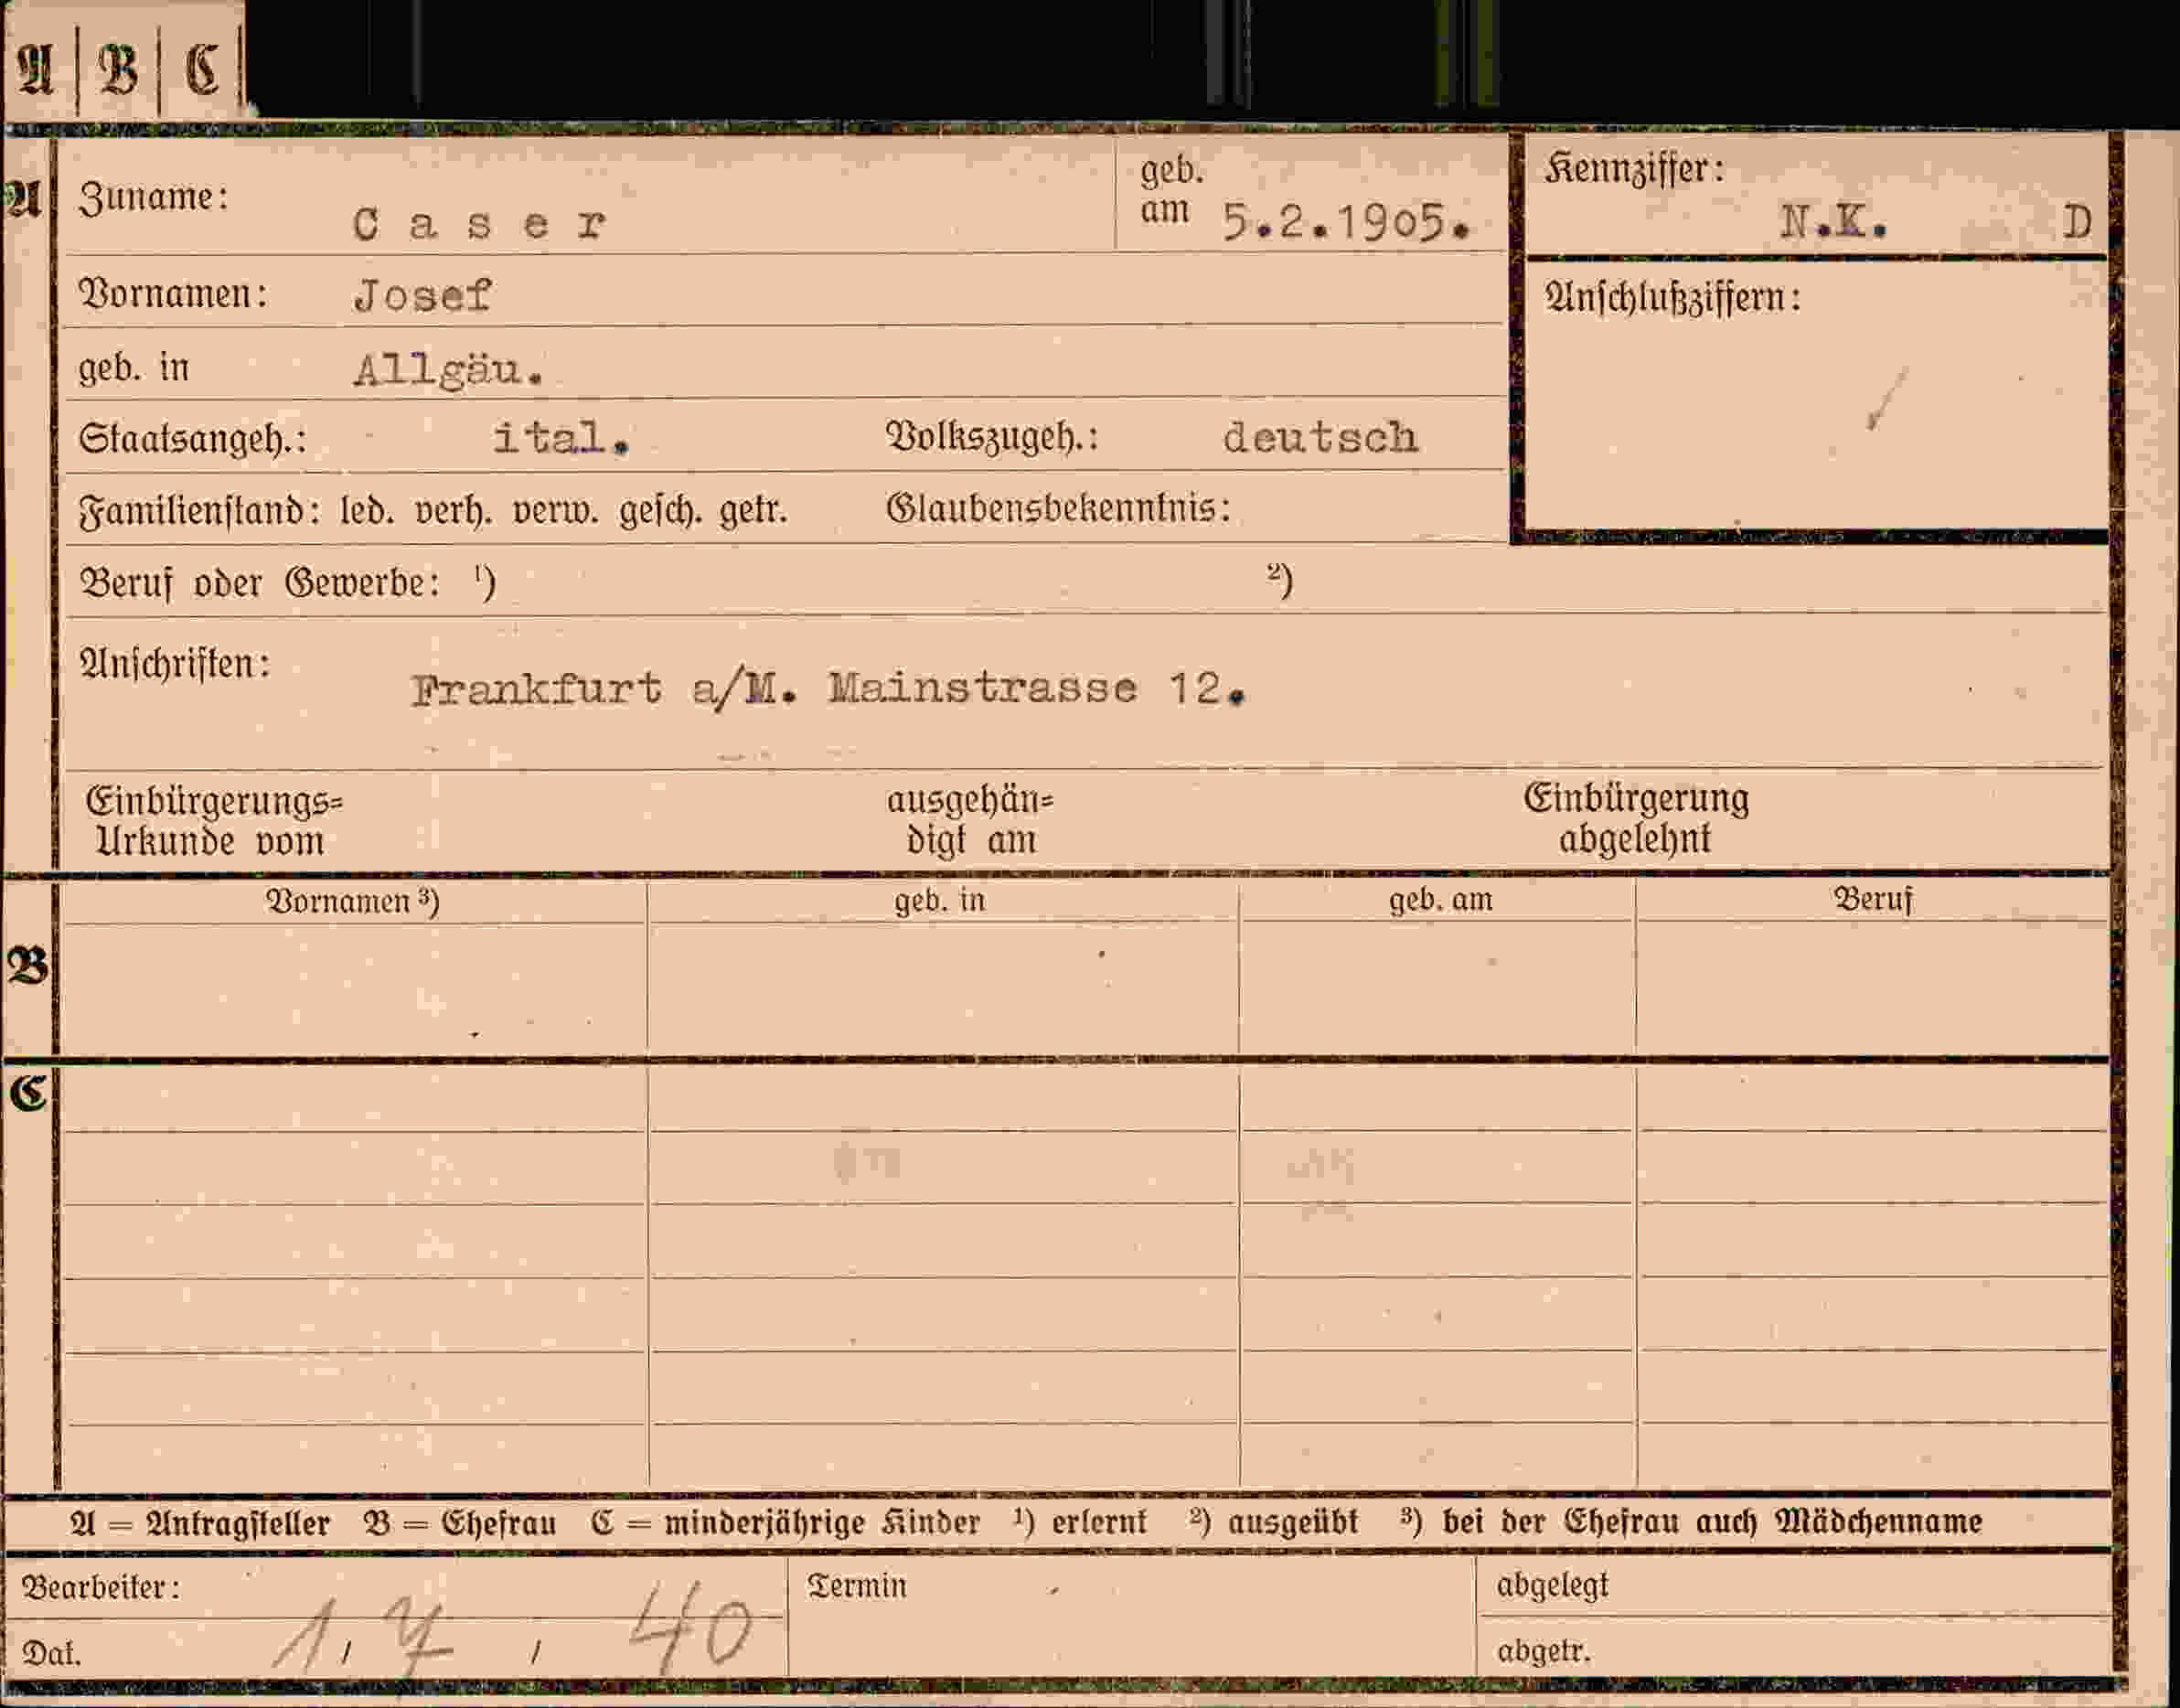 A | B | C
A Zuname: Caser geb. am 5.2.1905. Kennziffer: N.K. D
Vornamen: Josef Anschlußziffern:
geb. in Allgäu.
Staatsangeh.: ital. Volkszugeh.: deutsch
Familienstand: led. verh. verw. gesch. getr. Glaubensbekenntnis:
Beruf oder Gewerbe: ¹) ²)
Anschriften: Frankfurt a/M. Mainstrasse 12.
Einbürgerungs= Urkunde vom ausgehän= digt am Einbürgerung abgelehnt
Vornamen ³) geb. in geb. am Beruf
B
C
A = Antragsteller B = Ehefrau C = minderjährige Kinder ¹) erlernt ²) ausgeübt ³) bei der Ehefrau auch Mädchenname
Bearbeiter: Termin abgelegt
Dat. 1 / 7 / 40 abgetr.